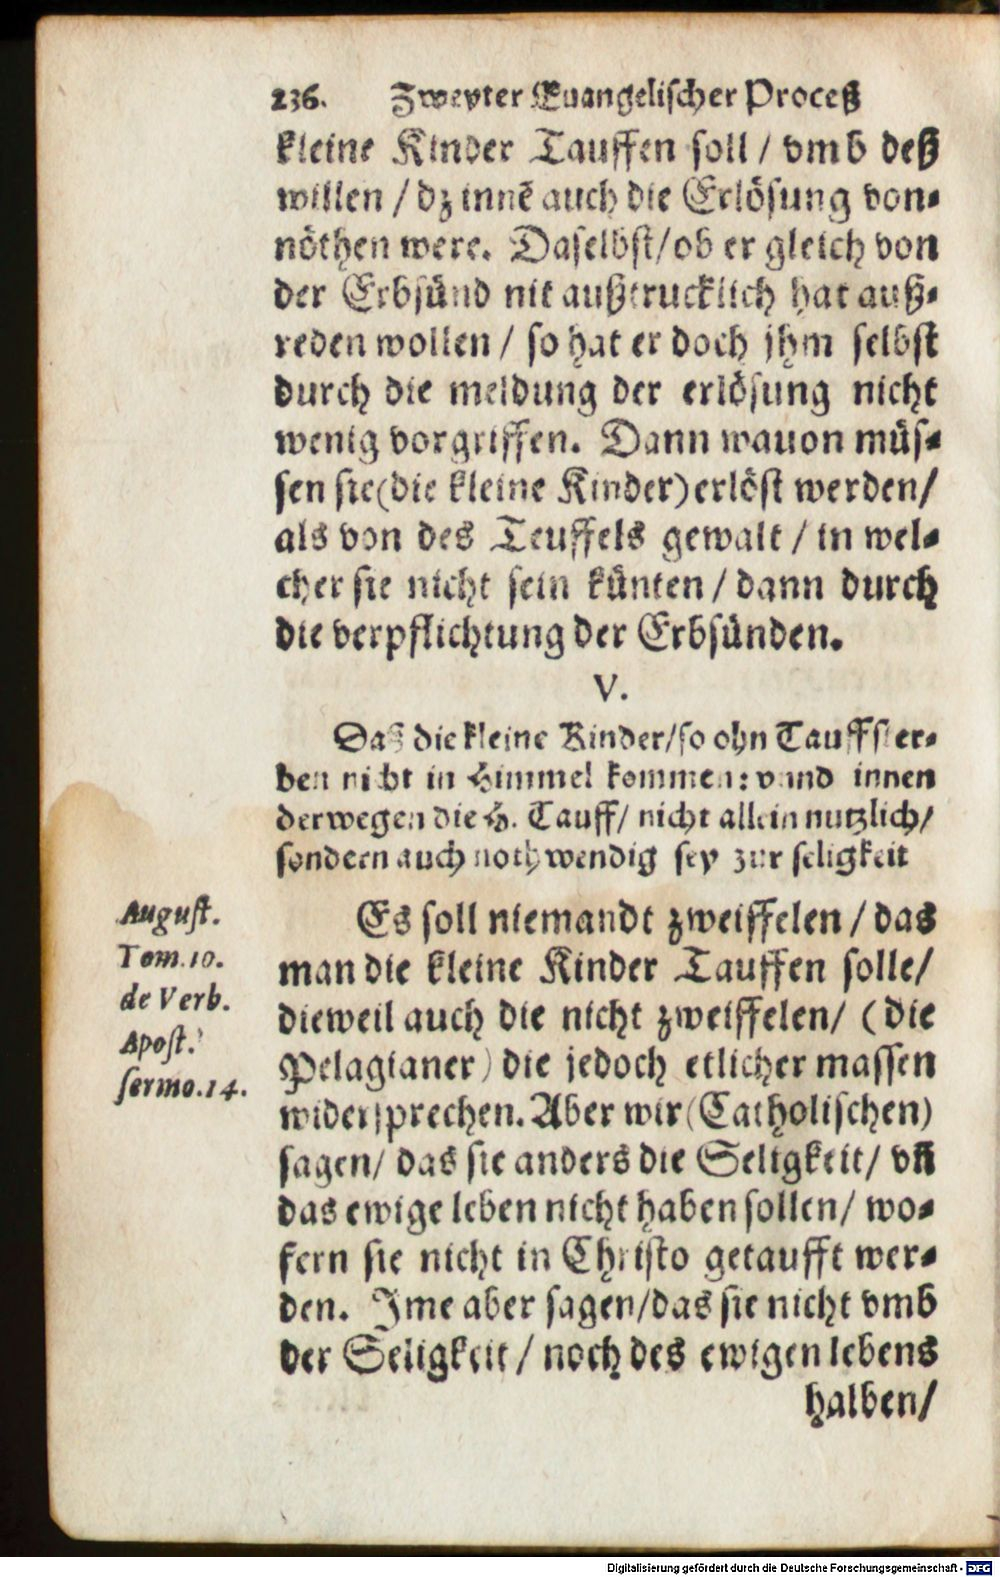 236. Zweyter Euangelischer Proceß
kleine Kinder Tauffen soll / vmb deß
willen / dz innē auch die Erlösung von-
nöthen were. Daselbst/ ob er gleich von
der Erbsünd nit außtrucklich hat auß-
reden wollen / so hat er doch jhm selbst
durch die meldung der erlösung nicht
wenig vorgriffen. Dann wauon müs-
sen sie (die kleine Kinder) erlöst werden/
als von des Teuffels gewalt / in wel-
cher sie nicht sein künten / dann durch
die verpflichtung der Erbsünden.
V.
Daß die kleine Kinder/ so ohn Tauff ster-
ben nicht in Himmel kommen: vnnd innen
derwegen die H. Tauff/ nicht allein nutzlich/
sondern auch nothwendig sey zur seligkeit
August.
Tom. 10.
de Verb.
Apost.
sermo. 14.
Es soll niemandt zweiffelen / das
man die kleine Kinder Tauffen solle/
dieweil auch die nicht zweiffelen/ (die
Pelagianer) die jedoch etlicher massen
widersprechen. Aber wir (Catholischen)
sagen/ das sie anders die Seligkeit/ vñ
das ewige leben nicht haben sollen/ wo-
fern sie nicht in Christo getaufft wer-
den. Jme aber sagen/ das sie nicht vmb
der Seligkeit / noch des ewigen lebens
halben/
Digitalisierung gefördert durch die Deutsche Forschungsgemeinschaft - DFG